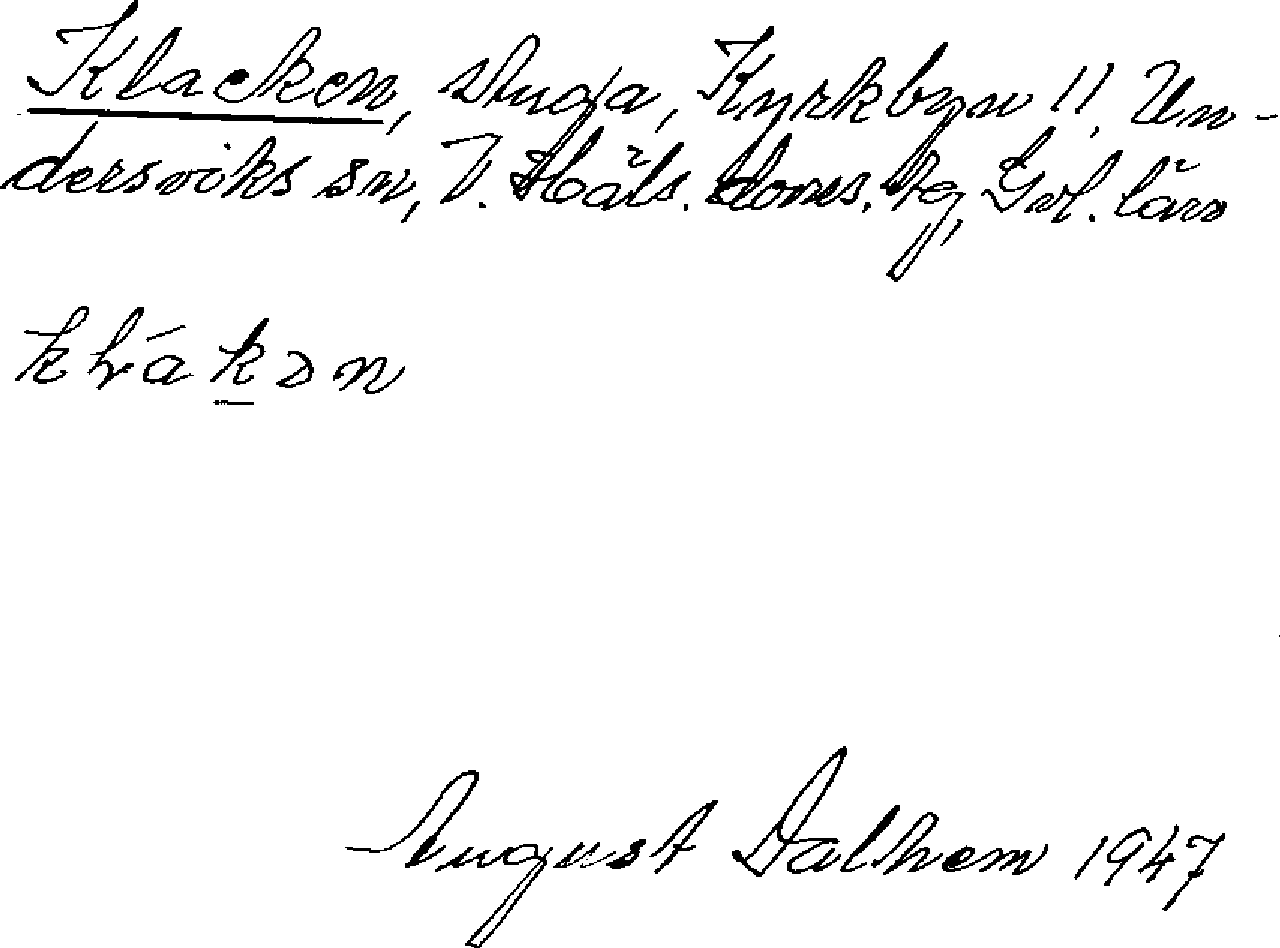 Klacken, stuga, Kyrkbyn 11, Un-
dersviks sn, V. Häls. doms. tg, Gvl. län
klákən
August Dalhem 1947